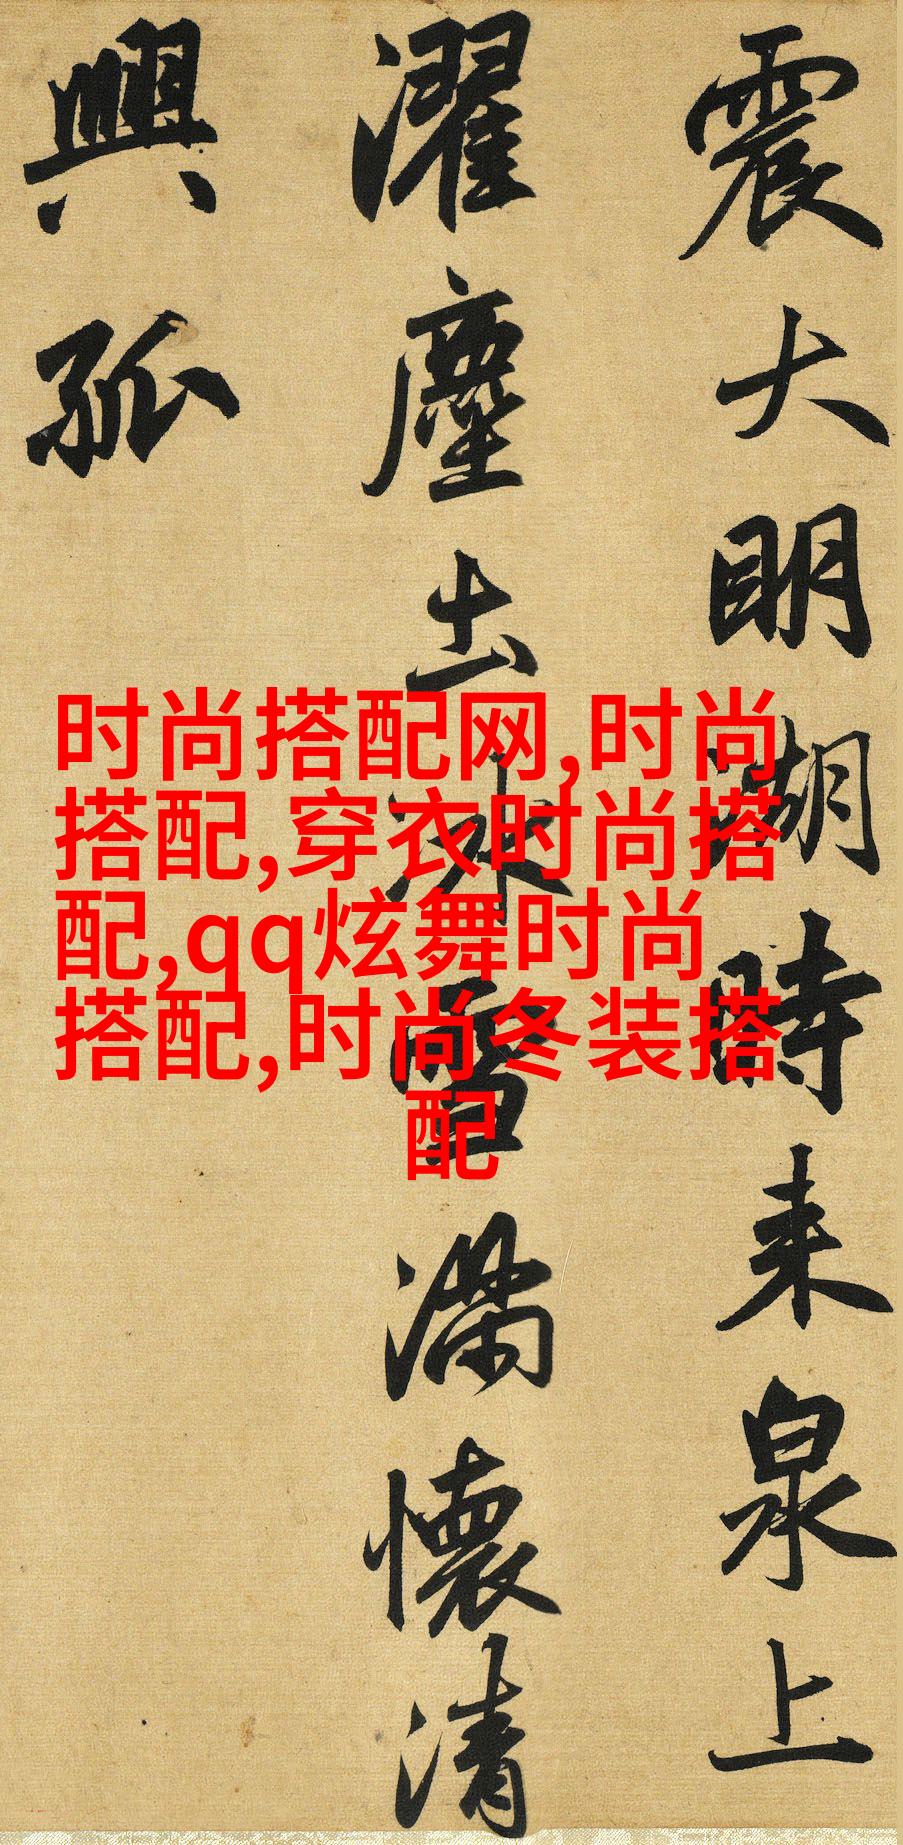 震大明湖時来泉上
濯塵土冰雪满懷清
興孤
时尚搭配网,时尚
搭配,穿衣时尚搭
配,qq炫舞时尚
搭配,时尚冬装搭
配